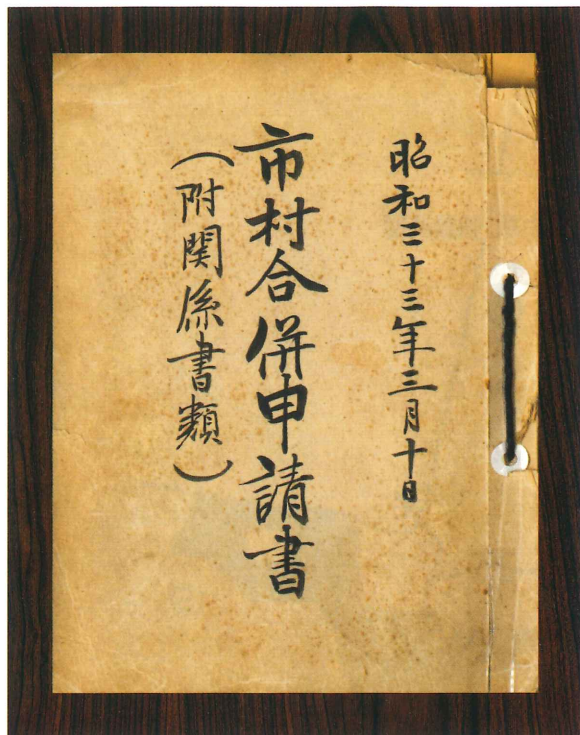 昭和三十三年三月十日
市村合併申請書
(附関係書類)